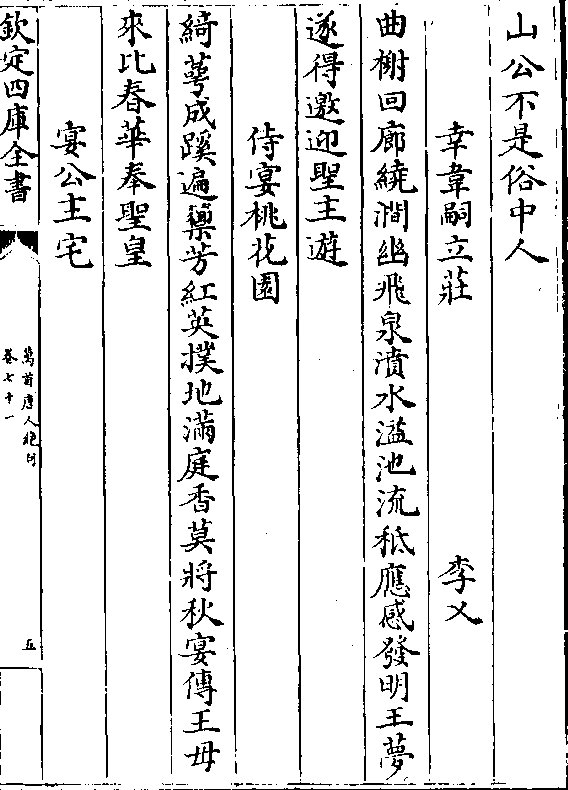 山公不是俗中人
幸韋嗣立莊　李乂
曲榭回廊繞澗幽飛泉濆水溢池流秪應感發明王夢
遂得邀迎聖主遊
侍宴桃花園
綺萼成蹊遍籞芳紅英撲地滿庭香莫將秋宴傳王母
來比春華奉聖皇
宴公主宅
欽定四庫全書
萬首唐人絕句
卷七十一
五